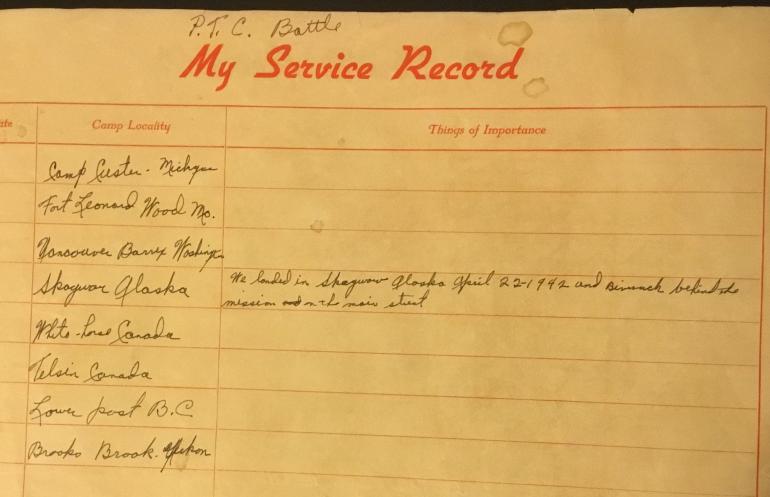 P.T.C. Battle
My Service Record
ate Camp Locality Things of Importance
Camp Custer - Michgan
Fort Leonard Wood Mo.
Vancouver Barrx Washington
Skagwar Alaska
We landed in Skagwar Alaska April 22-1942 and Bivwack behind the
mission on the main street
White-horse Canada
Telsin Canada
Lower post B.C.
Brooks Brook. Yukon